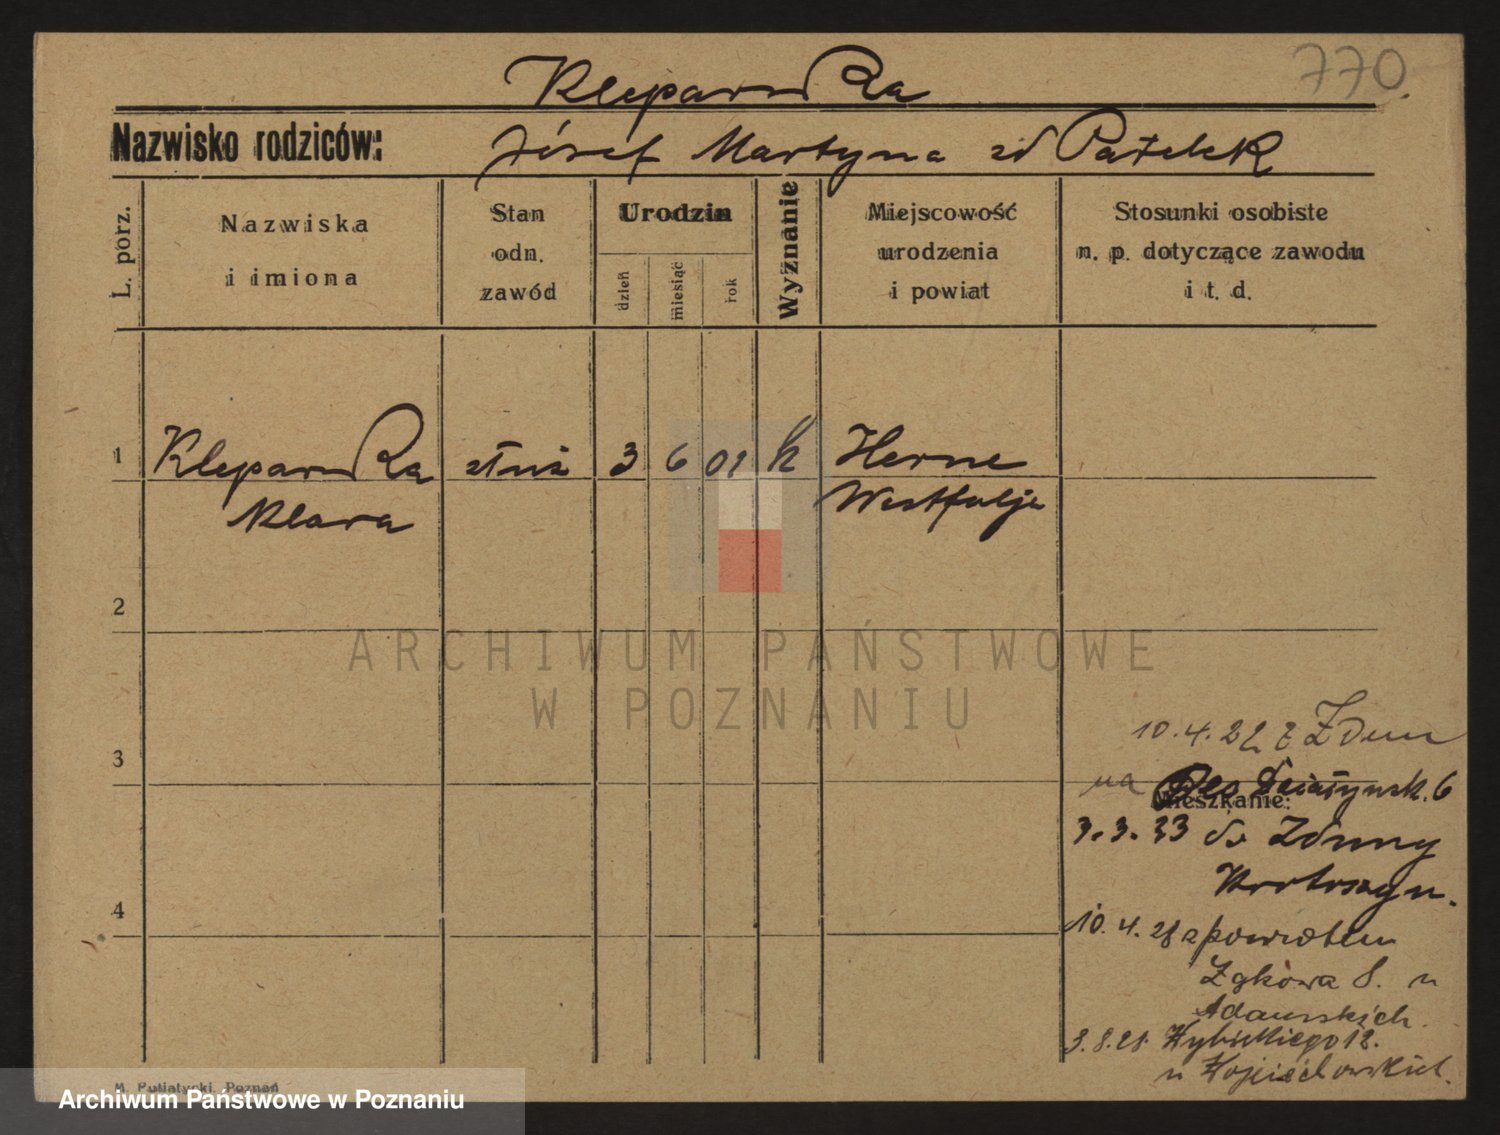 770.
Kleparska
Nazwisko rodziców: Józef Martyna zd Patelek
L. porz.
Nazwiska
i imiona
Stan
odn.
zawód
Urodzin
dzień
miesiąc
rok
Wyznanie
Miejscowość
urodzenia
i powiat
Stosunki osobiste
n. p. dotyczące zawodu
i t. d.
1 Kleparska służ 3 6 01 k Herne
Klara Westfalja
2
3
4
10.4.22 z Zdun
na
Mieszkanie:
3.3.23 do Zduny
Krotoszyn.
10.4.28 z powrotem
8. u
Adamskich.
3.8.28 Wybickiego 12.
u Wojciechowskich.
M. Putiatycki, Poznań
ARCHIWUM PAŃSTWOWE
W POZNANIU
Archiwum Państwowe w Poznaniu